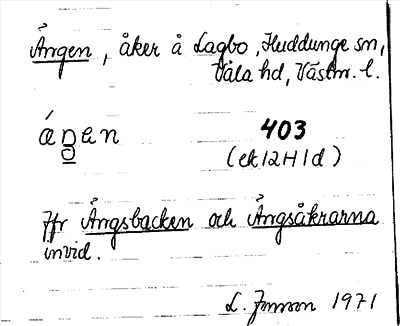 Ången, åker å Lagbo, Huddunge sn,
Våla hd, Västm. l.
403
(ek 12H 1d)
Jfr Ångsbacken och Ångsåkrarna
invid.
L. Jonsson 1971